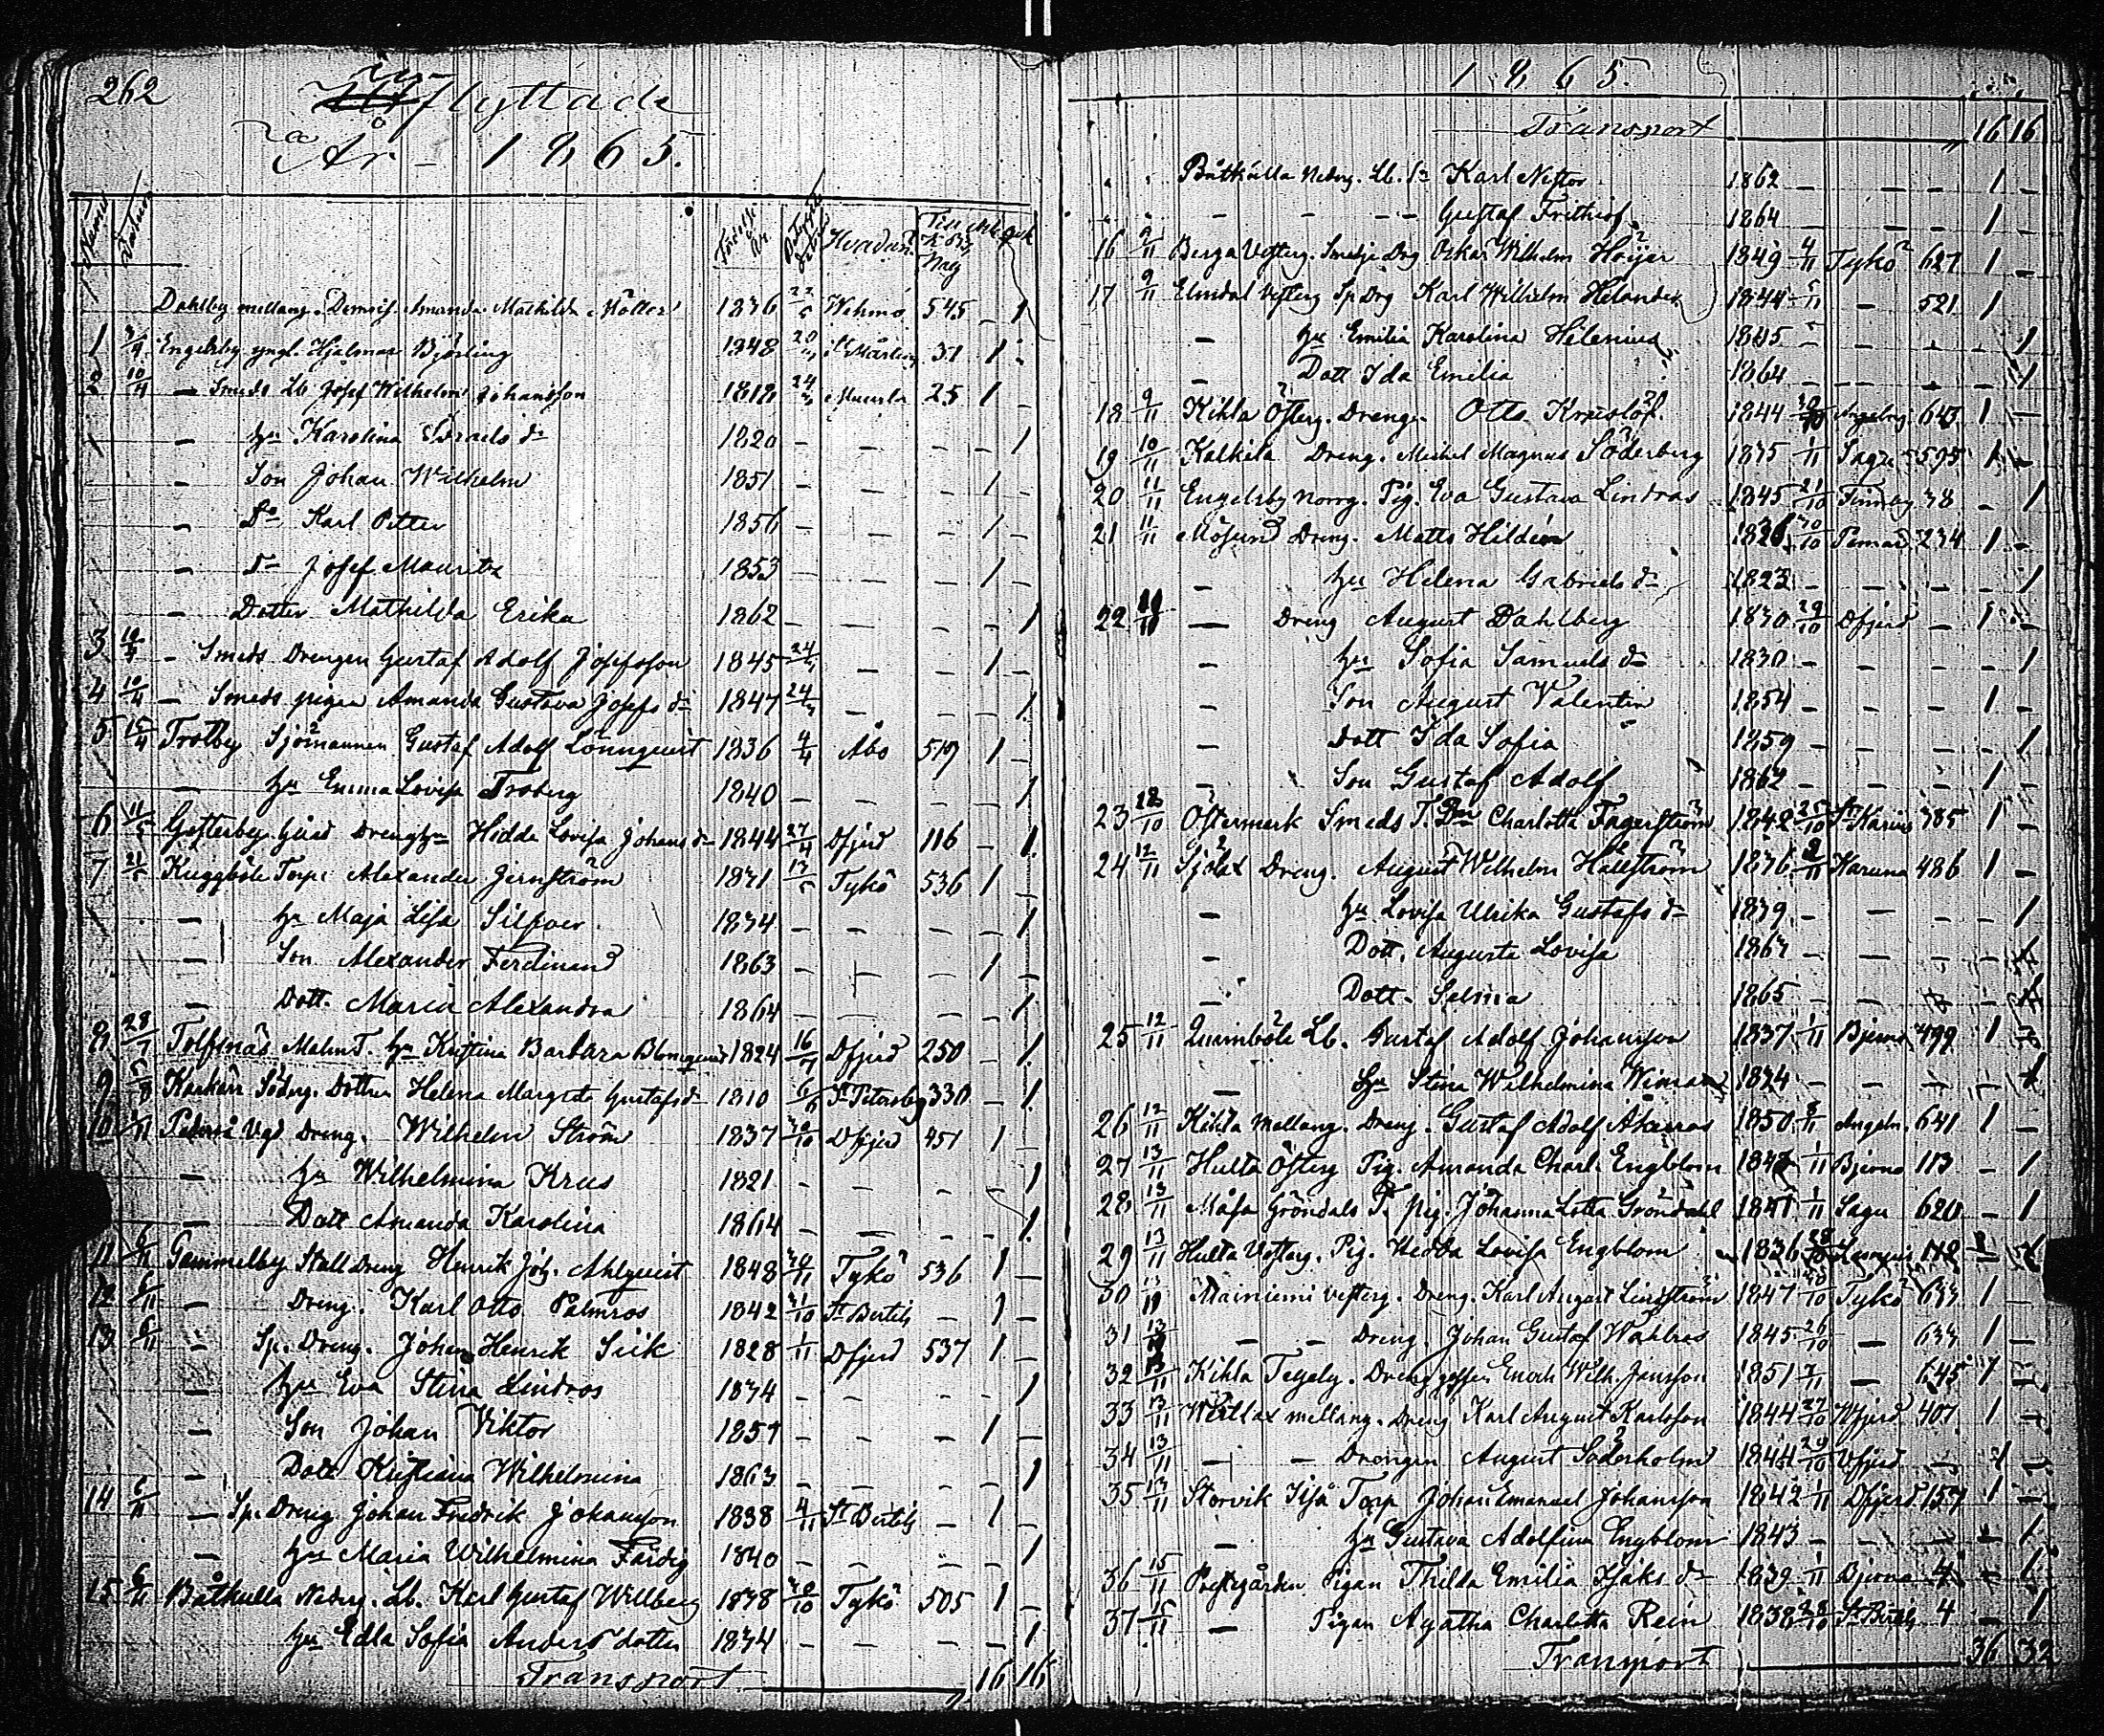 262
Inflyttade
År 1865.
Födelse År Hvadan Till K. Bok Mk Qvk
Dahlby mellang. Demois. Amanda Mathilda Möller 1836 22/5 Wehmo 545 - 1
1 Engelsby yngl. Hjalmar Björling 1848 St Mårtens 31 1
2 10/4 - Smeds Lb Josef Wilhelm Johansson 1818 25 1 -
- hu Karolina Israels dr 1820 - - - - 1
- Son Johan Wilhelm 1851 - - - 1 -
- Do Karl Petter 1856 - - - 1 -
- Dr Josef Mauritz 1853 - - - 1 -
- Dotter Mathilda Erika 1862 - - - - 1
3 10/4 - Smeds Drengen Gustaf Adolf Josefsson 1845 - - 1 -
4 10/4 - Smeds pigan Amanda Gustava Josefs dr 1847 - - - 1
5 15/4 Trotby Sjömannen Gustaf Adolf Lönnqvist 1836 4/4 Åbo 519 1 -
- hu Emma Lovisa Troberg 1840 - - - - 1
6 11/5 Drenghu Hedda Lovisa Johans dr 1844 27/4 Dfjerd 116 - 1
7 21/5 Kuggböle Torp. Alexander Jernström 1831 17/5 Tykö 536 1 -
- hu Maja Lisa Silfver 1834 - - - - 1
- Son Alexander Ferdinand 1863 - - - 1 -
- Dott. Maria Alexandra 1864 - - - - 1
8 28/7 Tolfsnäs Malm T. hu Kristina Barbara Blomqvist 1824 16/7 Dfjerd 250 - 1
9 Karkärr Söderg. Dottren Helena Margreta Gustafsdr 1810 6/6 St Petersbg 330 - 1
10 Dreng. Wilhelm Ström 1837 30/10 Dfjerd 451 1 -
- hu Wilhelmina Krus 1821 - - - - 1
- Dott Amanda Karolina 1864 - - - - 1
11 6/11 Gammelby Stalldreng Henrik Joh. Ahlqvist 1848 Tykö 536 1 -
12 6/11 - Dreng. Karl Otto Palmros 1842 31/10 St Bertils - 1 -
13 6/11 - Sp. Dreng. Johan Henrik Siik 1828 1/11 Dfjerd 537 1 -
- hu Eva Stina Lindros 1834 - - - - 1
- Son Johan Viktor 1857 - - - 1 -
- Dott Kristiana Wilhelmina 1863 - - - - 1
14 6/11 - Sp. Dreng Johan Fredrik Johansson 1838 4/11 St Bertils - 1 -
- hu Maria Wilhelmina Färdig 1840 - - - - 1
15 6/11 Båtkulla Nederg. Lb. Karl Gustaf Willberg 1838 30/10 Tykö 505 1 -
hu Edla Sofia Anders dotter 1834 - - - - 1
Transport 16 16
1865.
Transport 16 16
Båtkulla Nederg. Lb. Sn Karl Nestor 1862 - - - 1 -
- - - - Gustaf Frithiof 1864 - - - 1 -
16 9/11 Berga Vesterg. Smedje Drg Oskar Wilhelm Höijer 1849 4/11 Tykö 627 1 -
17 9/11 Elmdal Vesterg Sp Drg Karl Wilhelm Helander 1844 5/11 - 521 1
- hu Emilia Karolina Helenius 1845 - - - - 1
- Dott Ida Emilia 1864 - - - - 1
18 9/11 Kihla Österg. Dreng. Otto Kruslöf 1844 643 1 -
19 10/11 Kalkila Dreng. Mickel Magnus Söderberg 1835 1/11 Sagu 595 1 -
20 11/11 Engelsby norrg. Pig. Eva Gustava Lindros 1845 21/10 Finnby 38 - 1
21 11/11 Mösund Dreng. Matts Hildén 1826 30/10 Pemar 234 1 -
- hu Helena Gabriels dr 1823 - - - - 1
22 - Dreng August Dahlberg 1830 29/10 Dfjerd - 1 -
- hu Sofia Samuels dr 1830 - - - - 1
- Son August Valentin 1854 - - - 1 -
- Dott Ida Sofia 1859 - - - - 1
- Son Gustaf Adolf 1862 - - - 1 -
23 Östermark Smeds T. Charlotta Fagerström 1842 25/10 St Karins 385 1 -
24 12/11 Sjölax Dreng. August Wilhelm Hallström 1836 2/11 Karuna 486 1 -
- hu Lovisa Ulrika Gustafs dr 1839 - - - - 1
- Dott. Augusta Lovisa 1863 - - - - 1
- Dott. Selma 1865 - - - - 1
25 12/11 Qvimböle Lb. Gustaf Adolf Johansson 1837 1/11 Bjerno 499 1
- hu Stina Wilhelmina Wiman 1834 - - - - 1
26 12/11 Kihla mellang. Dreng. Gustaf Adolf Åkerros 1850 Angeln. 641 1 -
27 13/11 Hulta Österg Pig. Amanda Charl. Engblom 1847 1/11 Bjerno 113 - 1
28 13/11 Måsa Gröndals T. pig. Johanna Lotta Gröndahl 1841 1/11 Sagu 620 - 1
29 13/11 Hulta Vesterg. Pig. Hedda Lovisa Engblom 1836 112
30 Mainiemi Vesterg. Dreng. Karl August Lindström 1847 Tykö 633 1 -
31 - - Dreng. Johan Gustaf Wahlros 1845 26/10 - 633 1 -
32 13/11 Kihla Dreng gossen Enoch Wilh. Jansson 1851 - 645 1
33 13/11 mellang. Dreng Karl August Karlsson 1844 27/10 Dfjerd 407 1 -
34 13/11 - - Drengen August Söderholm 1844 29/10 Dfjerd - 1 -
35 13/11 Storvik Torp Johan Emanuel Johansson 1842 1/11 Dfjerd 157 1 -
- hu Gustava Adolfina Engblom 1843 - - - - 1
36 15/11 Prestgården Pigan Thilda Emilia Isaks dr 1839 1/11 Bjerno 4 - 1
37 15/11 - Pigan Agatha Charlotta Rein 1838 28/10 St Bertils 4 - 1
Transport 36 32